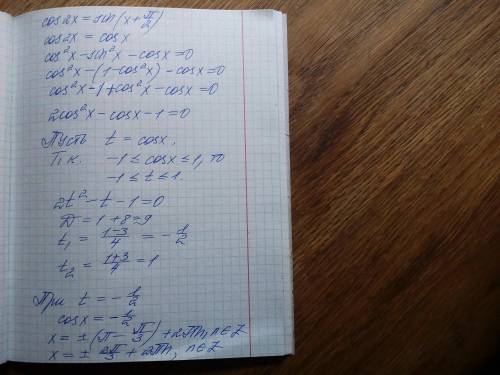 cos2x = sin(x + π/2)
cos2x = cosx
cos²x - sin²x - cosx = 0
cos²x - (1 - cos²x) - cosx = 0
cos²x - 1 + cos²x - cosx = 0
2cos²x - cosx - 1 = 0
Пусть t = cosx,
Т.к. -1 ≤ cosx ≤ 1, то
-1 ≤ t ≤ 1.
2t² - t - 1 = 0
D = 1 + 8 = 9
t₁ = (1-3)/4 = -1/2
t₂ = (1+3)/4 = 1
При t = -1/2
cosx = -1/2
x = ± (π - π/3) + 2πn, n∈Z
x = ± 2π/3 + 2πn, n∈Z